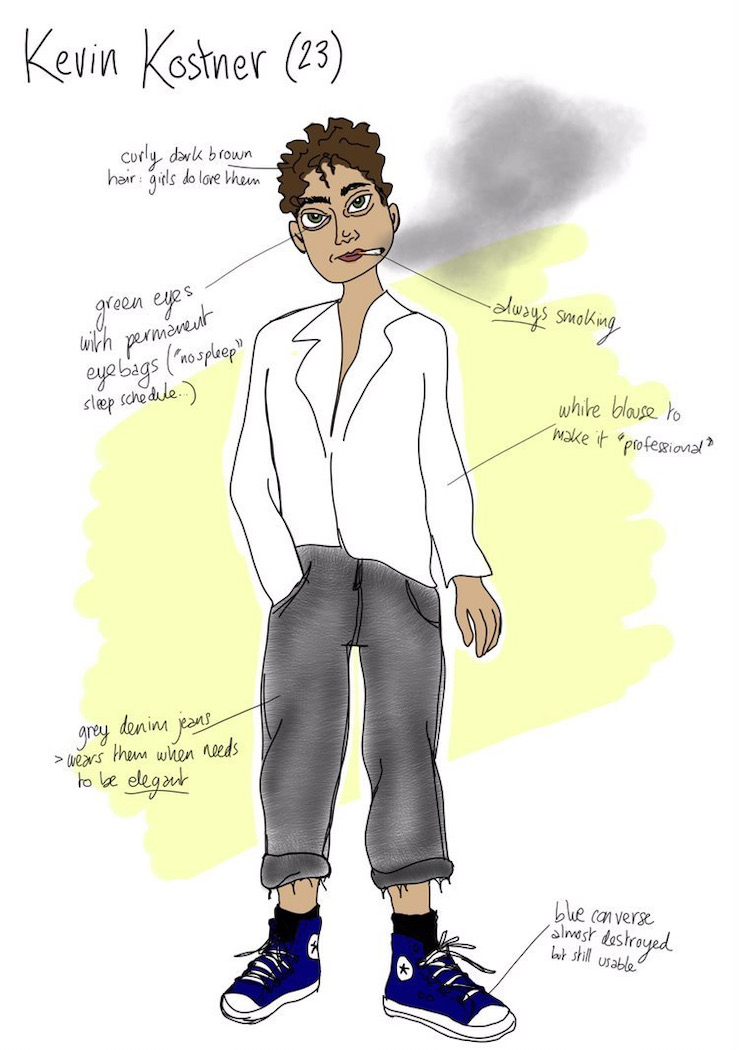 Kevin Kostner (23)
curly dark brown
hair: girls do love them
green eyes
with permanent
eyebags ("no spleep"
sleep schedule...)
always smoking
white blouse to
make it "professional"
grey denim jeans
> wears them when needs
to be elegant
blue converse
almost destroyed
but still usable